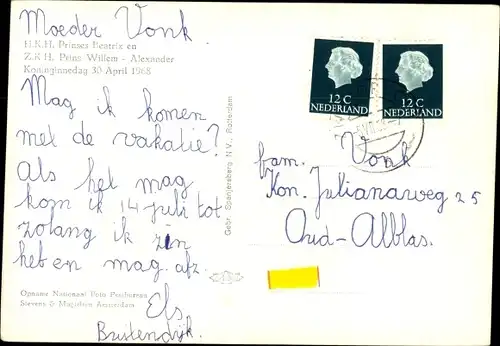 Moeder Vonk.
H.K.H. Prinses Beatrix en
Z.K.H. Prins Willem - Alexander
Koninginnedag 30 April 1968
Mag ik komen
met de vakatie?
Als het mag
kom ik 14 juli tot
zolang ik zin
heb en mag. afz.
Els
Buitendijk.
Opname Nationaal Foto Persbureau
Stevens & Magielsen Amsterdam
Gebr. Spanjersberg N.V., Rotterdam
12 C
NEDERLAND
12 C
NEDERLAND
fam. Vonk
Kon. Julianaweg 25
Oud-Alblas.